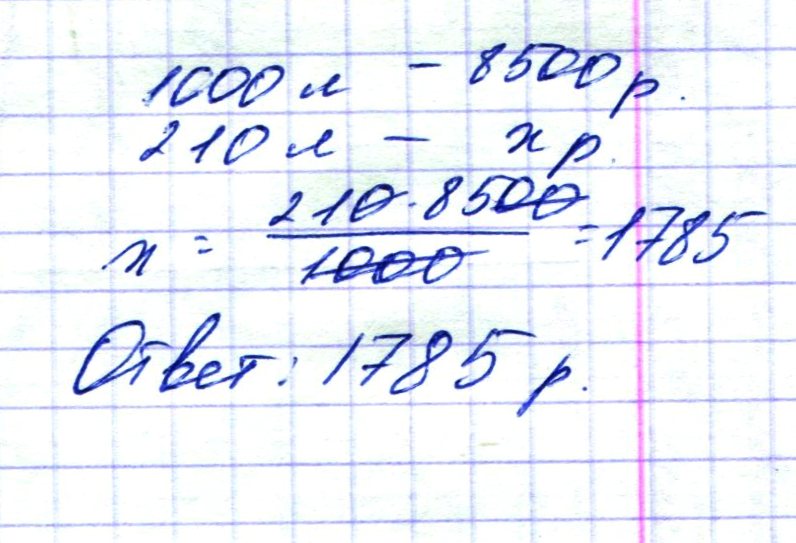 1000 л – 8500 р.
210 л – x р.
x = 210 · 8500 / 1000 = 1785
Ответ: 1785 р.